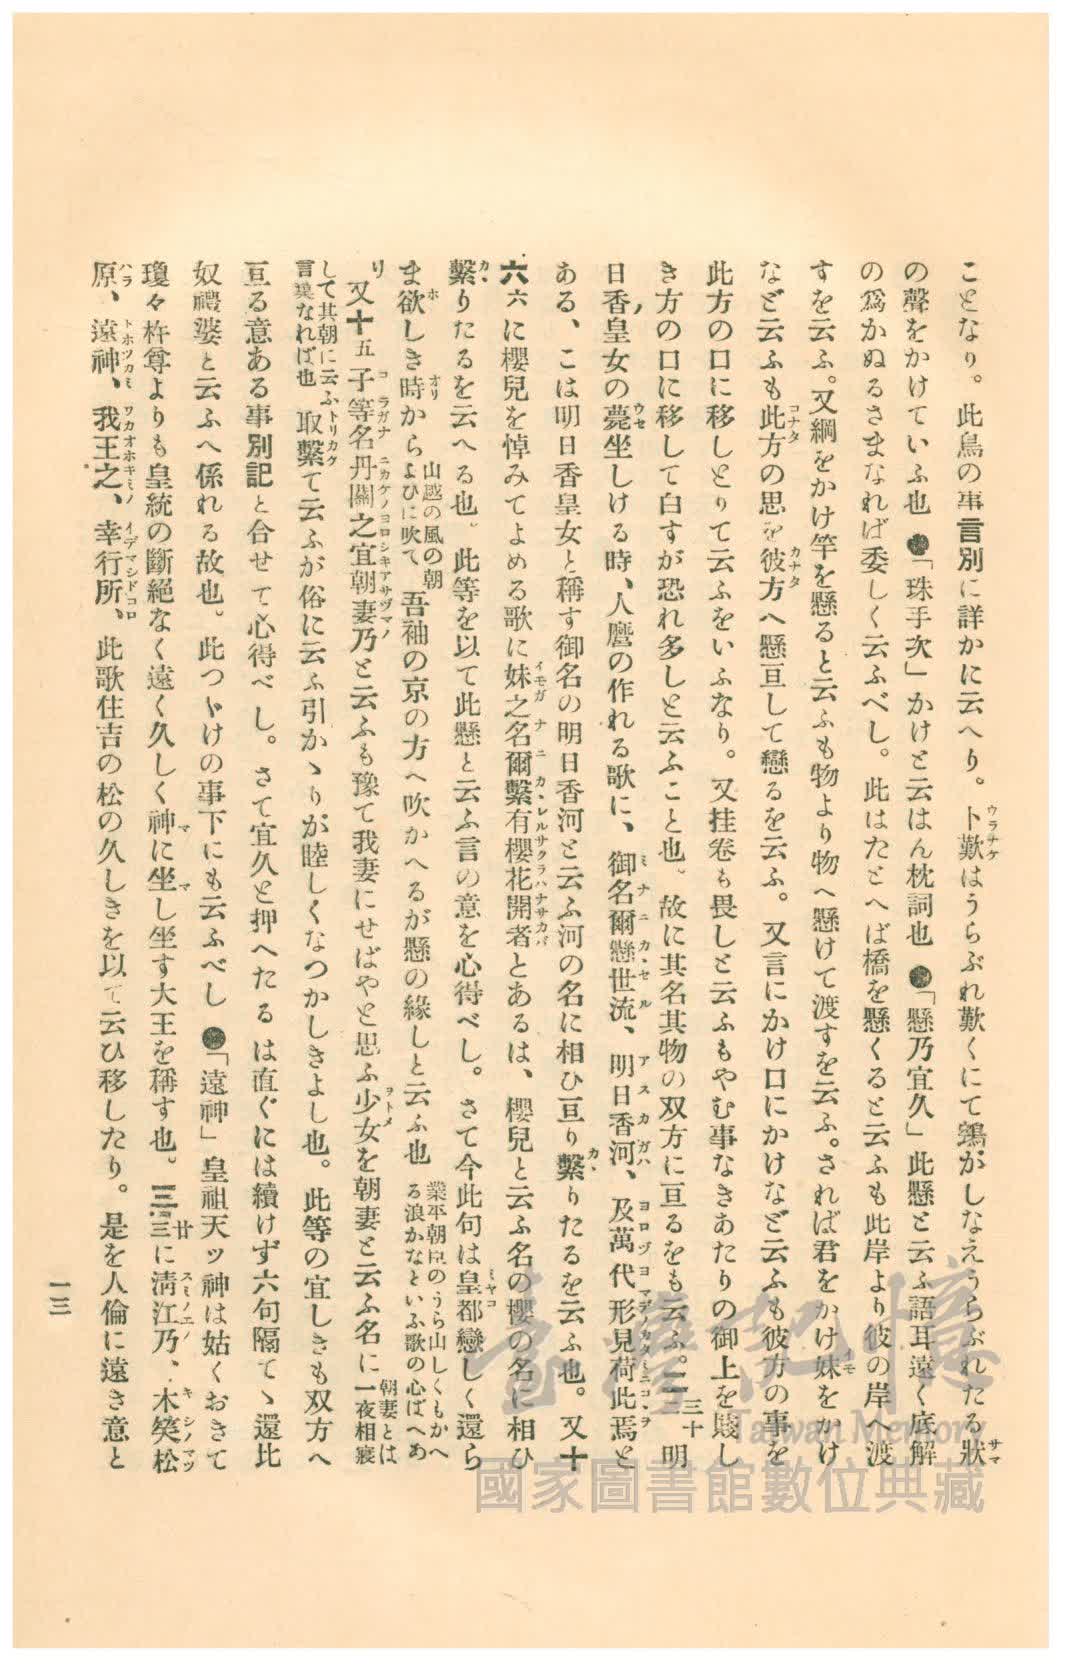 ことなり。此鳥の事言別に詳かに云へり。卜歎はうらぶれ歎くにて鵼がしなえうらぶれたる狀
の聲をかけていふ也●「珠手次」かけと云はん枕詞也●「懸乃宜久」此懸と云ふ語耳遠く底解
の爲かぬるさまなれば委しく云ふべし。此はたとへば橋を懸くると云ふも此岸より彼の岸へ渡
すを云ふ。又綱をかけ竿を懸ると云ふも物より物へ懸けて渡すを云ふ。されば君をかけ妹をかけ
など云ふも此方の思を彼方へ懸亘して戀るを云ふ。又言にかけ口にかけなど云ふも彼方の事を
此方の口に移しとりて云ふをいふなり。又挂卷も畏しと云ふもやむ事なきあたりの御上を賤し
き方の口に移して白すが恐れ多しと云ふこと也。故に其名其物の双方に亘るをも云ふ。二三十明
日香皇女の薨坐しける時、人麿の作れる歌に、御名爾懸世流、明日香河、及萬代形見荷此焉と
ある、こは明日香皇女と稱す御名の明日香河と云ふ河の名に相ひ亘り繫りたるを云ふ也。又十
六六に櫻兒を悼みてよめる歌に妹之名爾繫有櫻花開者とあるは、櫻兒と云ふ名の櫻の名に相ひ
繫りたるを云へる也。此等を以て此懸と云ふ言の意を心得べし。さて今此句は皇都戀しく還ら
ま欲しき時から山越の風の朝よひに吹て吾袖の京の方へ吹かへるが懸の緣しと云ふ也業平朝臣のうら山しくもかへる浪かなといふ歌の心ばへあ
り又十五子等名丹關之宜朝妻乃と云ふも豫て我妻にせばやと思ふ少女を朝妻と云ふ名に朝妻とは一夜相寢
して其朝に云ふ言葉なれば也取繫て云ふが俗に云ふ引かゝりが睦しくなつかしきよし也。此等の宜しきも双方へ
亘る意ある事別記と合せて心得べし。さて宜久と押へたるは直ぐには續けず六句隔てゝ還比
奴禮婆と云ふへ係れる故也。此つゞけの事下にも云ふべし●「遠神」皇祖天ッ神は姑くおきて
瓊々杵尊よりも皇統の斷絕なく遠く久しく神に坐し坐す大王を稱す也。三三に淸江乃、木笶松
原、遠神、我王之、幸行所、此歌住吉の松の久しきを以て云ひ移したり。是を人倫に遠き意と
一三
臺灣記憶
Taiwan Memory
國家圖書館數位典藏